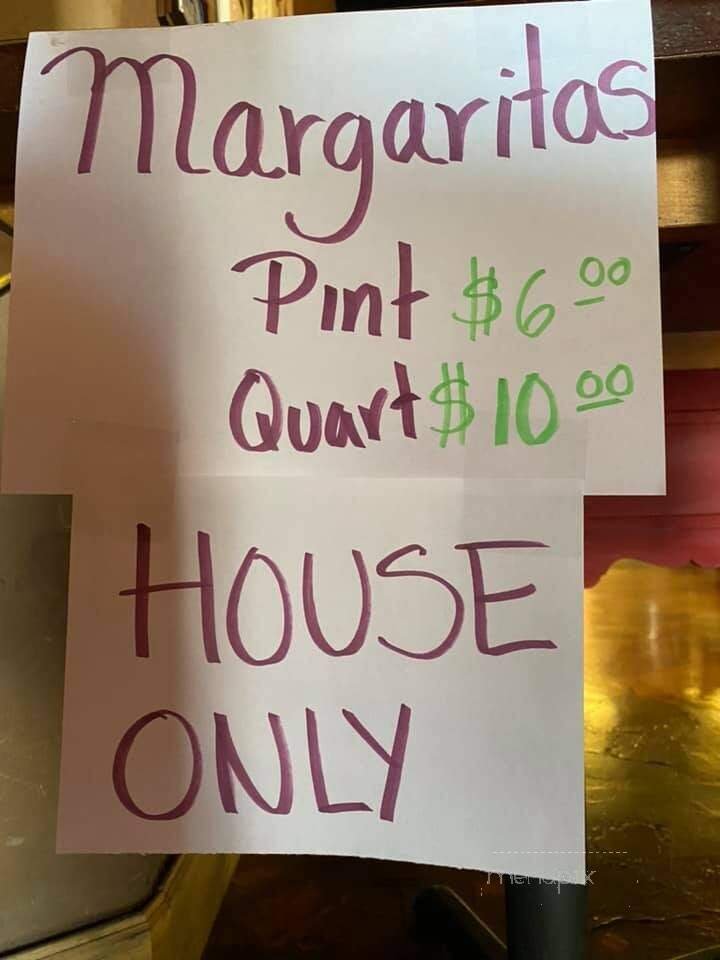 Margaritas
Pint $6.00
Quart $10.00
HOUSE
ONLY
menupix